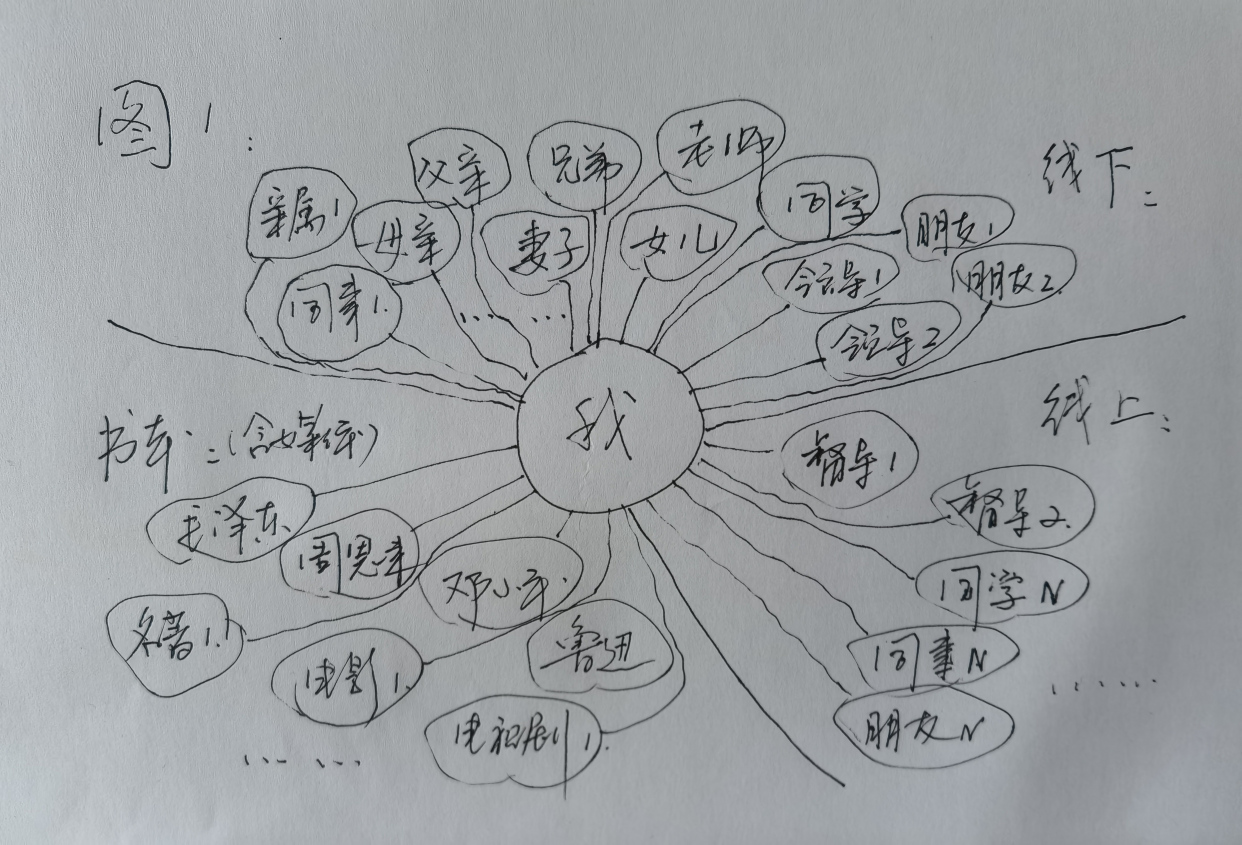 图1:
线下:
亲属1
父亲
兄弟
老师
同学
母亲
妻子
女儿
朋友1
同事1.
领导1
朋友2.
领导2
……
我
书本:(含媒体)
线上:
毛泽东.
周恩来
邓小平.
鲁迅
名著1.
电影1.
电视剧1.
……
督导1
督导2.
同学N
同事N
朋友N
……